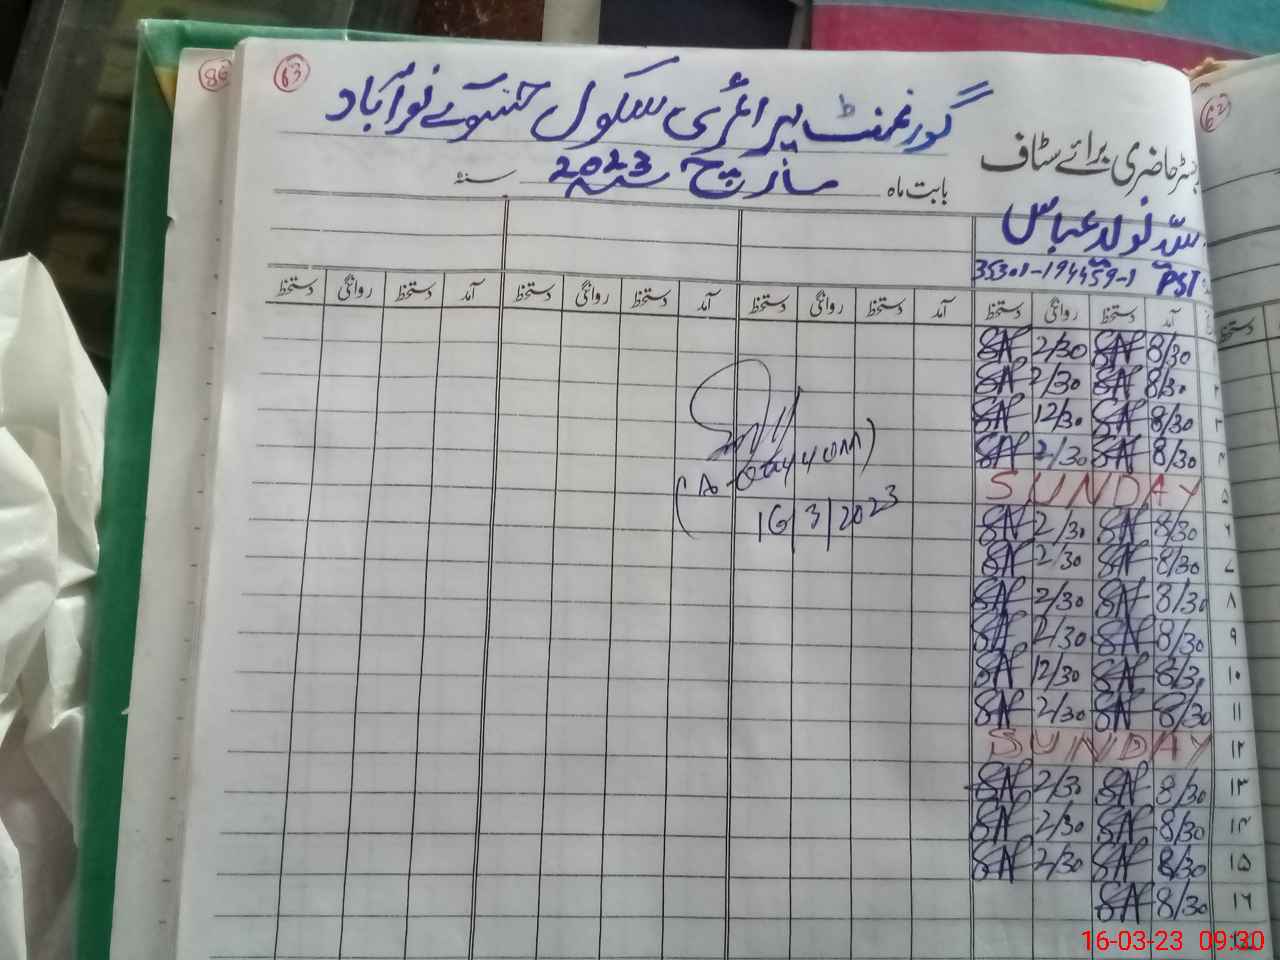 63
86
62
گورنمنٹ پرائمری سکول حسوکے نوآباد
رجسٹر حاضری برائے سٹاف
بابت ماہ مارچ 2023 سنہ
سید نوید عباس
35301-194459-1 PST
آمد دستخط روانگی دستخط آمد دستخط روانگی دستخط آمد دستخط روانگی دستخط آمد دستخط روانگی دستخط
دستخط
8/30 SAN 2/30 SAN
۲ 8/30 SAN 2/30 SAN
۳ 8/30 SAN 12/30 SAN
۴ 8/30 SAN 2/30 SAN
۵ SUNDAY
۶ 8/30 SAN 2/30 SAN
۷ 8/30 SAN 2/30 SAN
۸ 8/30 SAN 2/30 SAN
۹ 8/30 SAN 2/30 SAN
۱۰ 8/30 SAN 12/30 SAN
۱۱ 8/30 SAN 2/30 SAN
۱۲ SUNDAY
۱۳ 8/30 SAN 2/30 SAN
۱۴ 8/30 SAN 2/30 SAN
۱۵ 8/30 SAN 2/30 SAN
۱۶ 8/30 SAN
(A-Qayyum)
16/3/2023
16-03-23 09:30